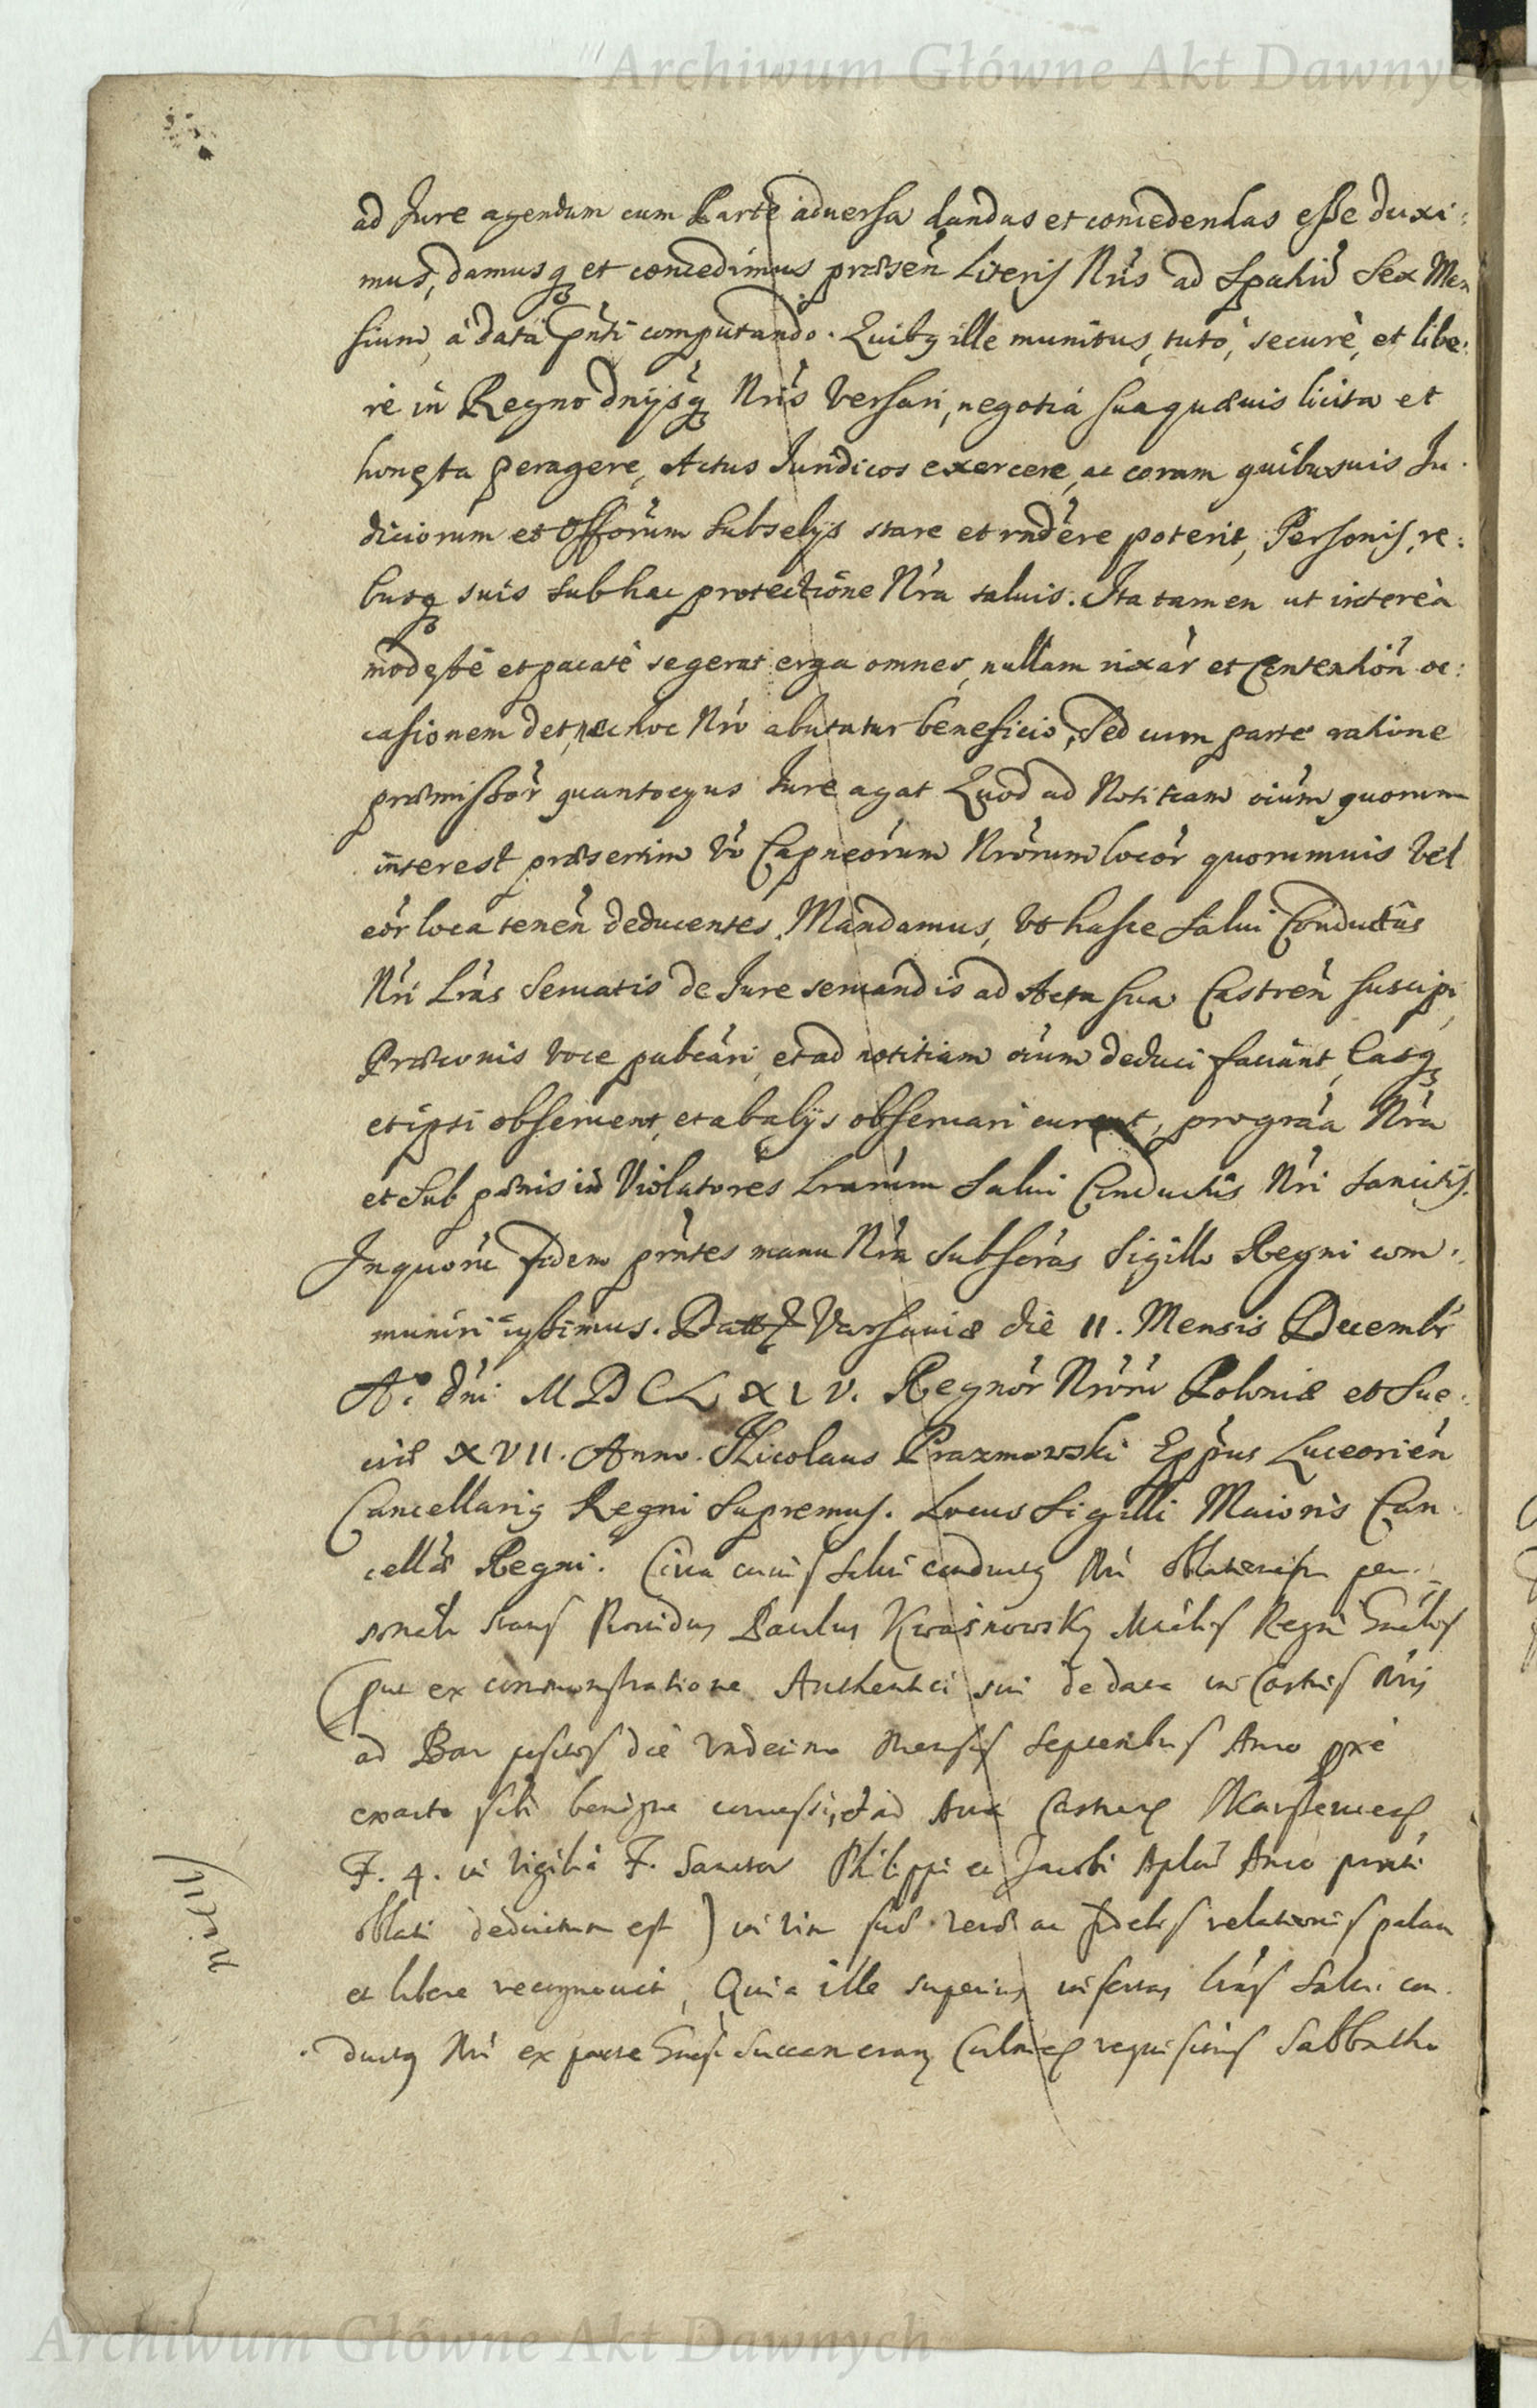 Archiwum Główne Akt Dawnych
ad Jure agendum cum Parte aduersa dandas et concedendas esse duxi:
mus, damusq et concedimus præsen Literis Nris ad Spatiu Sex Men
sium, à datâ pnti computando. Quibq ille munitus, tutò, securè, et libe:
rè in Regno dnijsq Nris Versari, negotia sua quæuis licita et
honesta peragere, Actus Juridicos exercere, ac coram quibusuis Ju:
diciorum et Offorum Subselijs stare et rndere poterit, Personis, re:
busq suis sub hac protectione Nra saluis. Ita tamen ut intereà
modestè et pacatè se gerat erga omnes, nullam rixar et Contention oc:
casionem det, nec hoc Nro abutatur beneficio, Sed cum parte ratione
præmissor quantocyus Jure agat Quod ad Notitiam oium quorum
interest præsertim Vo Capneorum Nrorum locor quorumuis Vel
eor loca tenen deducentes, Mandamus, Vt hasce Salui Conductûs
Nri Lras Seruatis de Jure seruandis ad Acta sua Castren suscipi,
Præconis voce pubcari, et ad notitiam oium deduci faciant, Easq
et ipsi obseruent, et ab alijs obseruari curent, pro graa Nra
et Sub pœnis in Violatores Lrarum Salui Conductûs Nri sancitis.
In quoru fidem pntes manu Nra Subscras Sigillo Regni com:
muniri iussimus. Datt Varsauiæ die 11. Mensis Decembr
Ao dni MDCLXIV. Regnor Nroru Poloniæ et Sue:
ciæ XVII. Anno. Nicolaus Prazmowski Eppus Luceorien
Cancellariq Regni Supremus. Locus Sigilli Maioris Can:
cellæ Regni. Circa cuius salui conductq Nri oblationem per:
sonalr stans Prouidus Paulus Kwasnowsky Mrlis Regni Gnalis
(qui ex commonstratione Authentici sui de data in Castris Nris
ad Bar positis die Vndecima Mensis Septembris Anno pxe
exacto sibi benigne concessi, et ad Acta Castren
F. 4. in Vigilia F. Sanctor Philippi et Jacobi Aplor Anno pnti
oblati deductum est) in vim suæ veræ ac fidelis relationis palam
et libere recognouit, Quia ille superius insertas lras salui con:
ductq Nri ex parte Succamerarij Culmen requisitus Sabbatho
Archiwum Główne Akt Dawnych